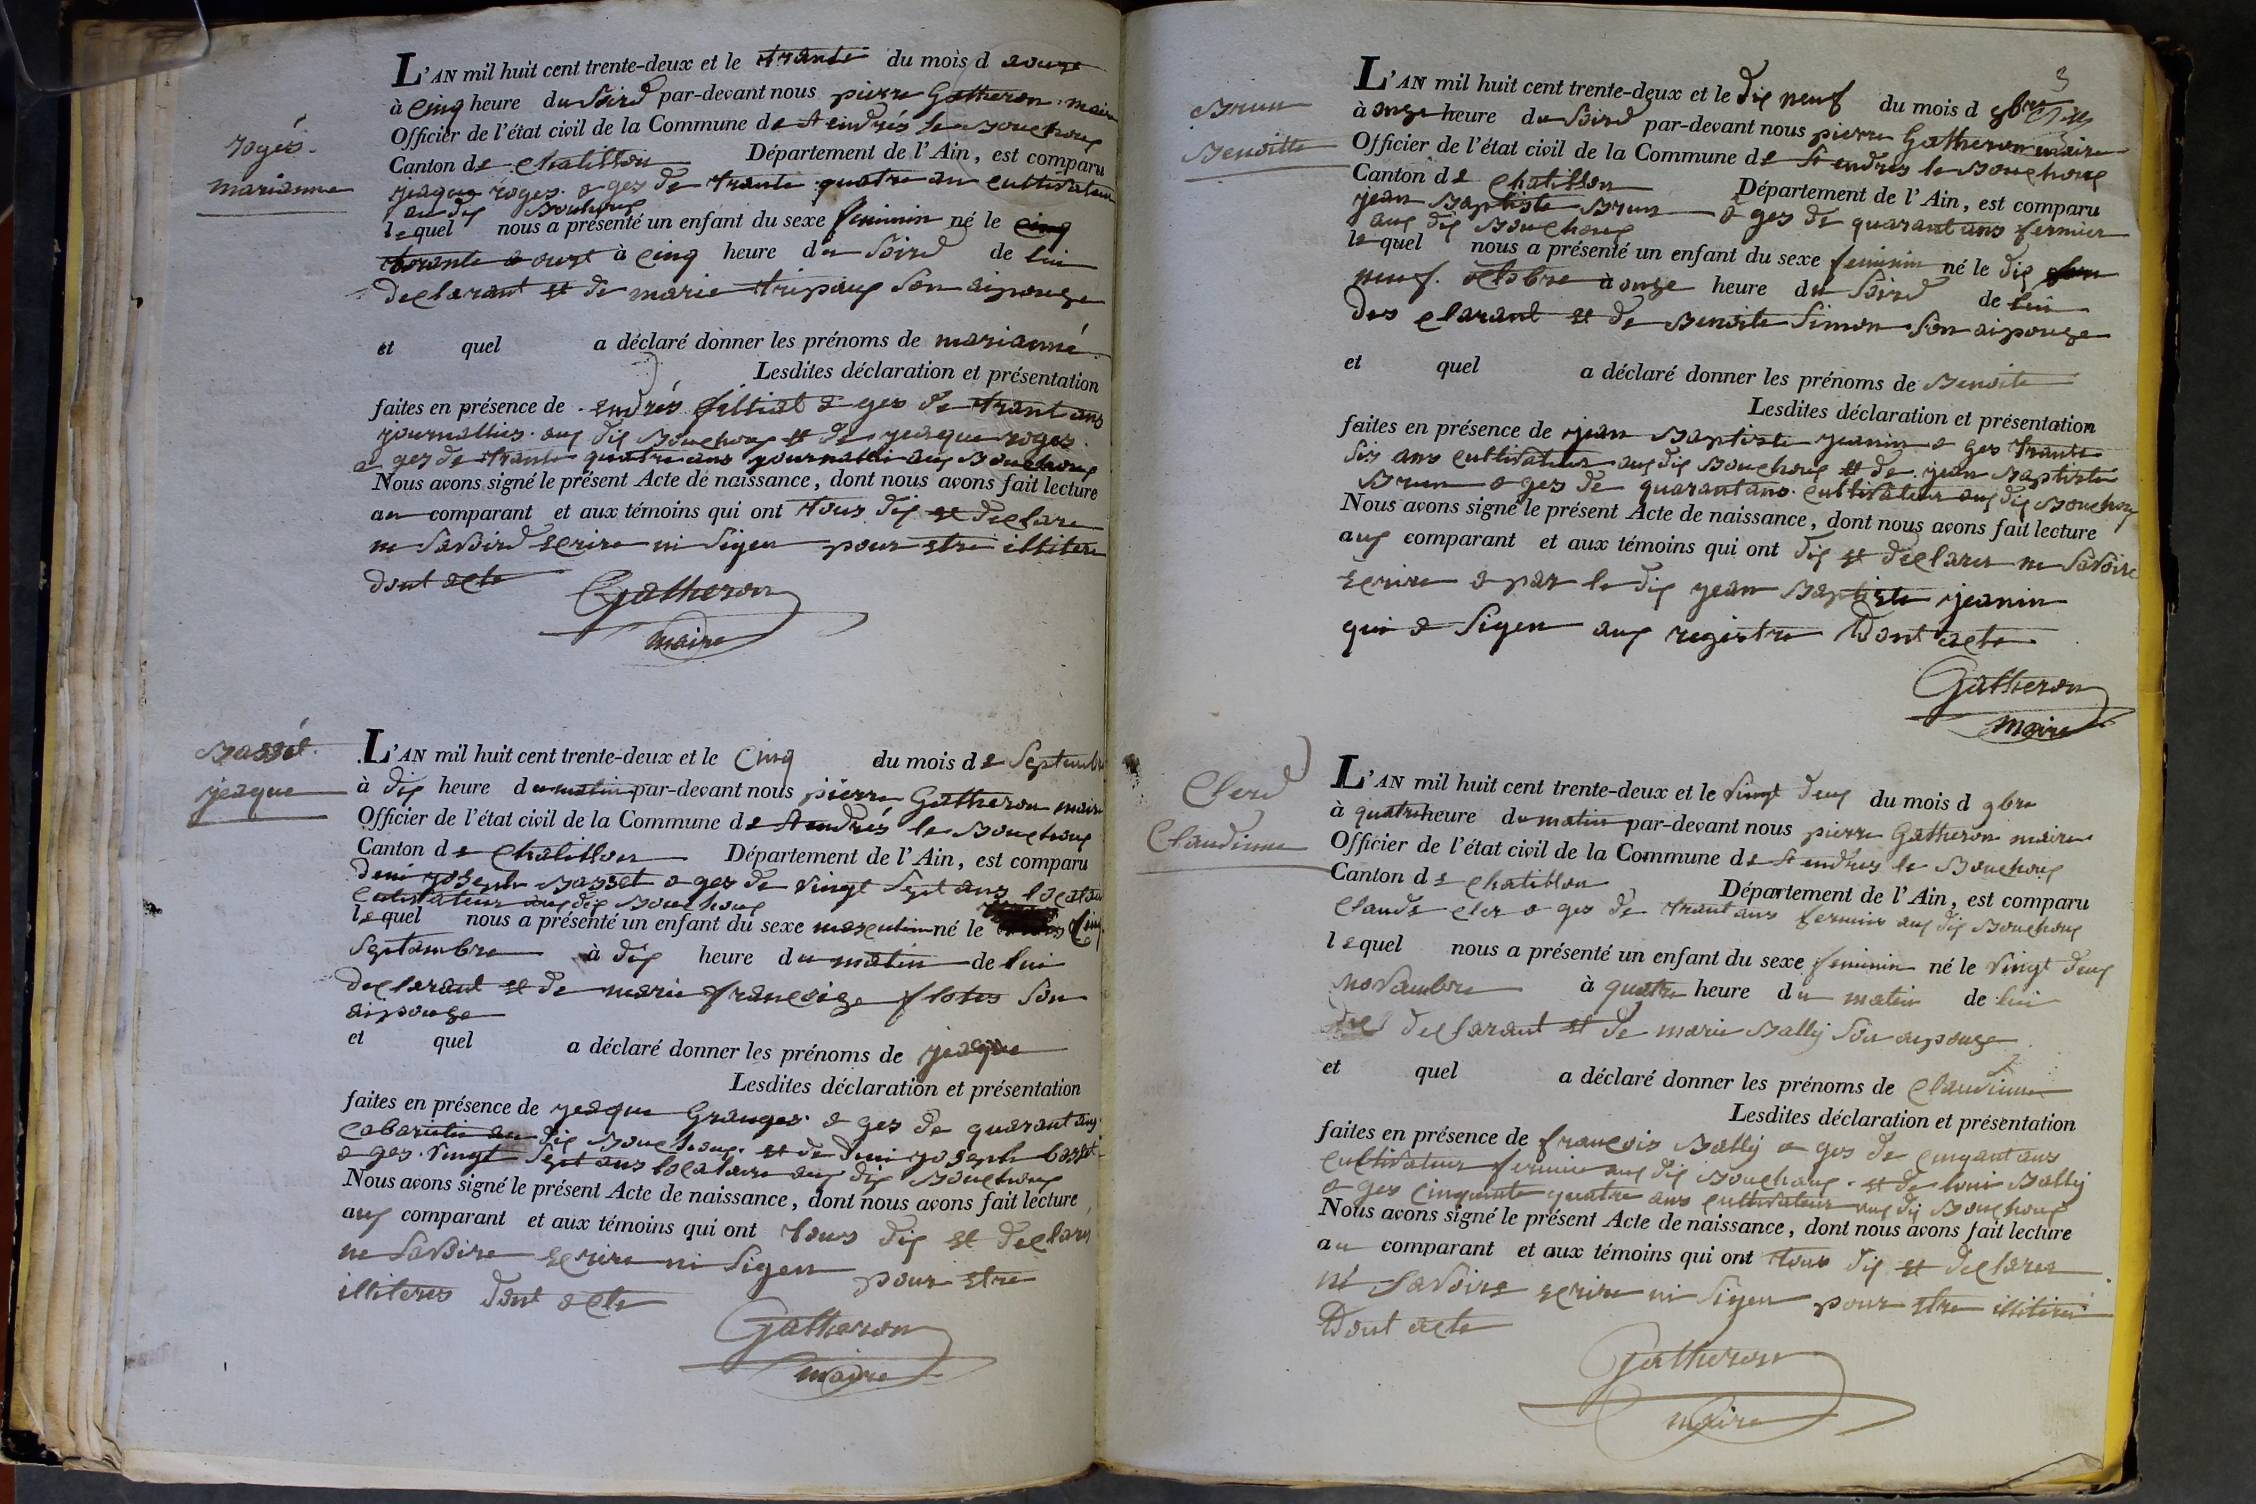 rogés.
marianne
L'AN mil huit cent trente-deux et le trante du mois d aouxt
à Cinq heure du Soird par-devant nous pierre Gatheron maire
Officier de l'état civil de la Commune de St endrés le Bouchoux
Canton de Chatillon Département de l'Ain, est comparu
jeaque roges a ges de trante quatre an cultivateur
au dix Bouhoux
lequel nous a présenté un enfant du sexe feminin né le
trante aouxt à Cinq heure du Soird de lui
declarant et de marie tripaux Son aipouze
et quel a déclaré donner les prénoms de marianné
Lesdites déclaration et présentation
faites en présence de endrés filliat a ges de trant ans
journallies aux dix Bouchoux et de jeaque roges
a ges de trante quatre ans journallié aux Bouchoux
Nous avons signé le présent Acte de naissance, dont nous avons fait lecture
au comparant et aux témoins qui ont tous dix et declare
ne Savoird Ecrire ni Sigen pour etre illitere
dont acte
Gatheron
maire
Basset
jeaque
L'AN mil huit cent trente-deux et le Cinq du mois de Septembre
à dix heure du matin par-devant nous pierre Gatheron maire
Officier de l'état civil de la Commune de St endrés le Bouchoux
Canton de Chatillon Département de l'Ain, est comparu
deni joseph Basset a ges de vingt Sept ans locataire
Cultivateur aux dix Bouchoux
lequel nous a présenté un enfant du sexe masculin né le Cinq
Septambre à dix heure du matin de lui
declarant et de marie francoize flotes Son
aipouze
et quel a déclaré donner les prénoms de jeaque
Lesdites déclaration et présentation
faites en présence de jeaque Granges a ges de quarant ans
Cabaretie au dix Bouchoux et de deni joseph basset
a ges vingt Sept ans locataire aux dix Bouchoux
Nous avons signé le présent Acte de naissance, dont nous avons fait lecture
aux comparant et aux témoins qui ont tous dix et declares
ne Savoire ecrire ni Sigen pour etre
illiteres dont acte
Gatheron
maire
3
Brun
Benoitte
L'AN mil huit cent trente-deux et le dix neuf du mois d
à onze heure du Soird par-devant nous pierre Gatheron maire
Officier de l'état civil de la Commune de St endres le Bouchoux
Canton de Chatillon Département de l'Ain, est comparu
jean Baptiste Brun a ges de quarant ans fermier
aux dix Bouchoux
lequel nous a présenté un enfant du sexe feminin né le dix
neuf octobre à onze heure du Soird de lui
des clarant et de Benoite Simon Son aipouze
et quel a déclaré donner les prénoms de Benoite
Lesdites déclaration et présentation
faites en présence de jean Baptiste jeanin a ges trante
Six ans cultivateur aux dix Bouchoux et de jean Baptiste
Brun a ges de quarant ans cultivateur aux dix Bouchoux
Nous avons signé le présent Acte de naissance, dont nous avons fait lecture
aux comparant et aux témoins qui ont dix et declares ne Savoire
ecrire a par le dix jean Baptiste jeanin
qui a Sigen aux registre Dont acte
Gatheron
maire
Clerd
Claudinne
L'AN mil huit cent trente-deux et le vingt deux du mois d 9bre
à quatre heure du matin par-devant nous pierre Gatheron maire
Officier de l'état civil de la Commune de St endres le Bouchoux
Canton de Chatillon Département de l'Ain, est comparu
Claude cler a ges de trant ans fermier aux dix Bouchoux
lequel nous a présenté un enfant du sexe feminin né le vingt deux
novambre à quatre heure du matin de lui
declarant et de marie Bally Son aipouze
et quel a déclaré donner les prénoms de Claudinne
Lesdites déclaration et présentation
faites en présence de francois Bally a ges de cinqant ans
cultivateur fermie aux dix Bouchoux et de loui Bally
a ges cinquante quatre ans cultivateur aux dix Bouchoux
Nous avons signé le présent Acte de naissance, dont nous avons fait lecture
au comparant et aux témoins qui ont tous dix et declares
né Savoire ecrire ni Sigen pour etre illiteré
Dont acte
Gatheron
maire